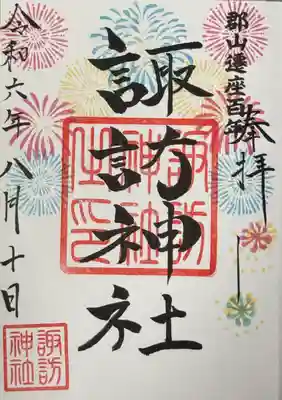 郡山遷座百
奉拝
諏訪神社
諏訪
神社
之印
令和六年八月十日
諏訪
神社